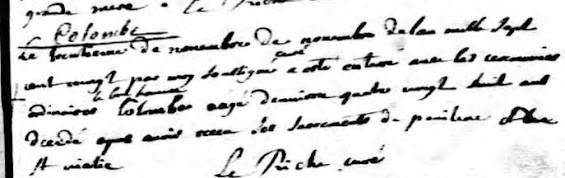 grande messe Le Riche
Colombe
Le trentieme de novembre de novembre de lan mille sept
cent vingt par moy soussigné curé a esté enterré avec les ceremonies
ordinaires la Colombe aagé denviron quatre vingt huit ans
decedé apres avoir receu les sacrements de penitence
st viatic Le Riche curé